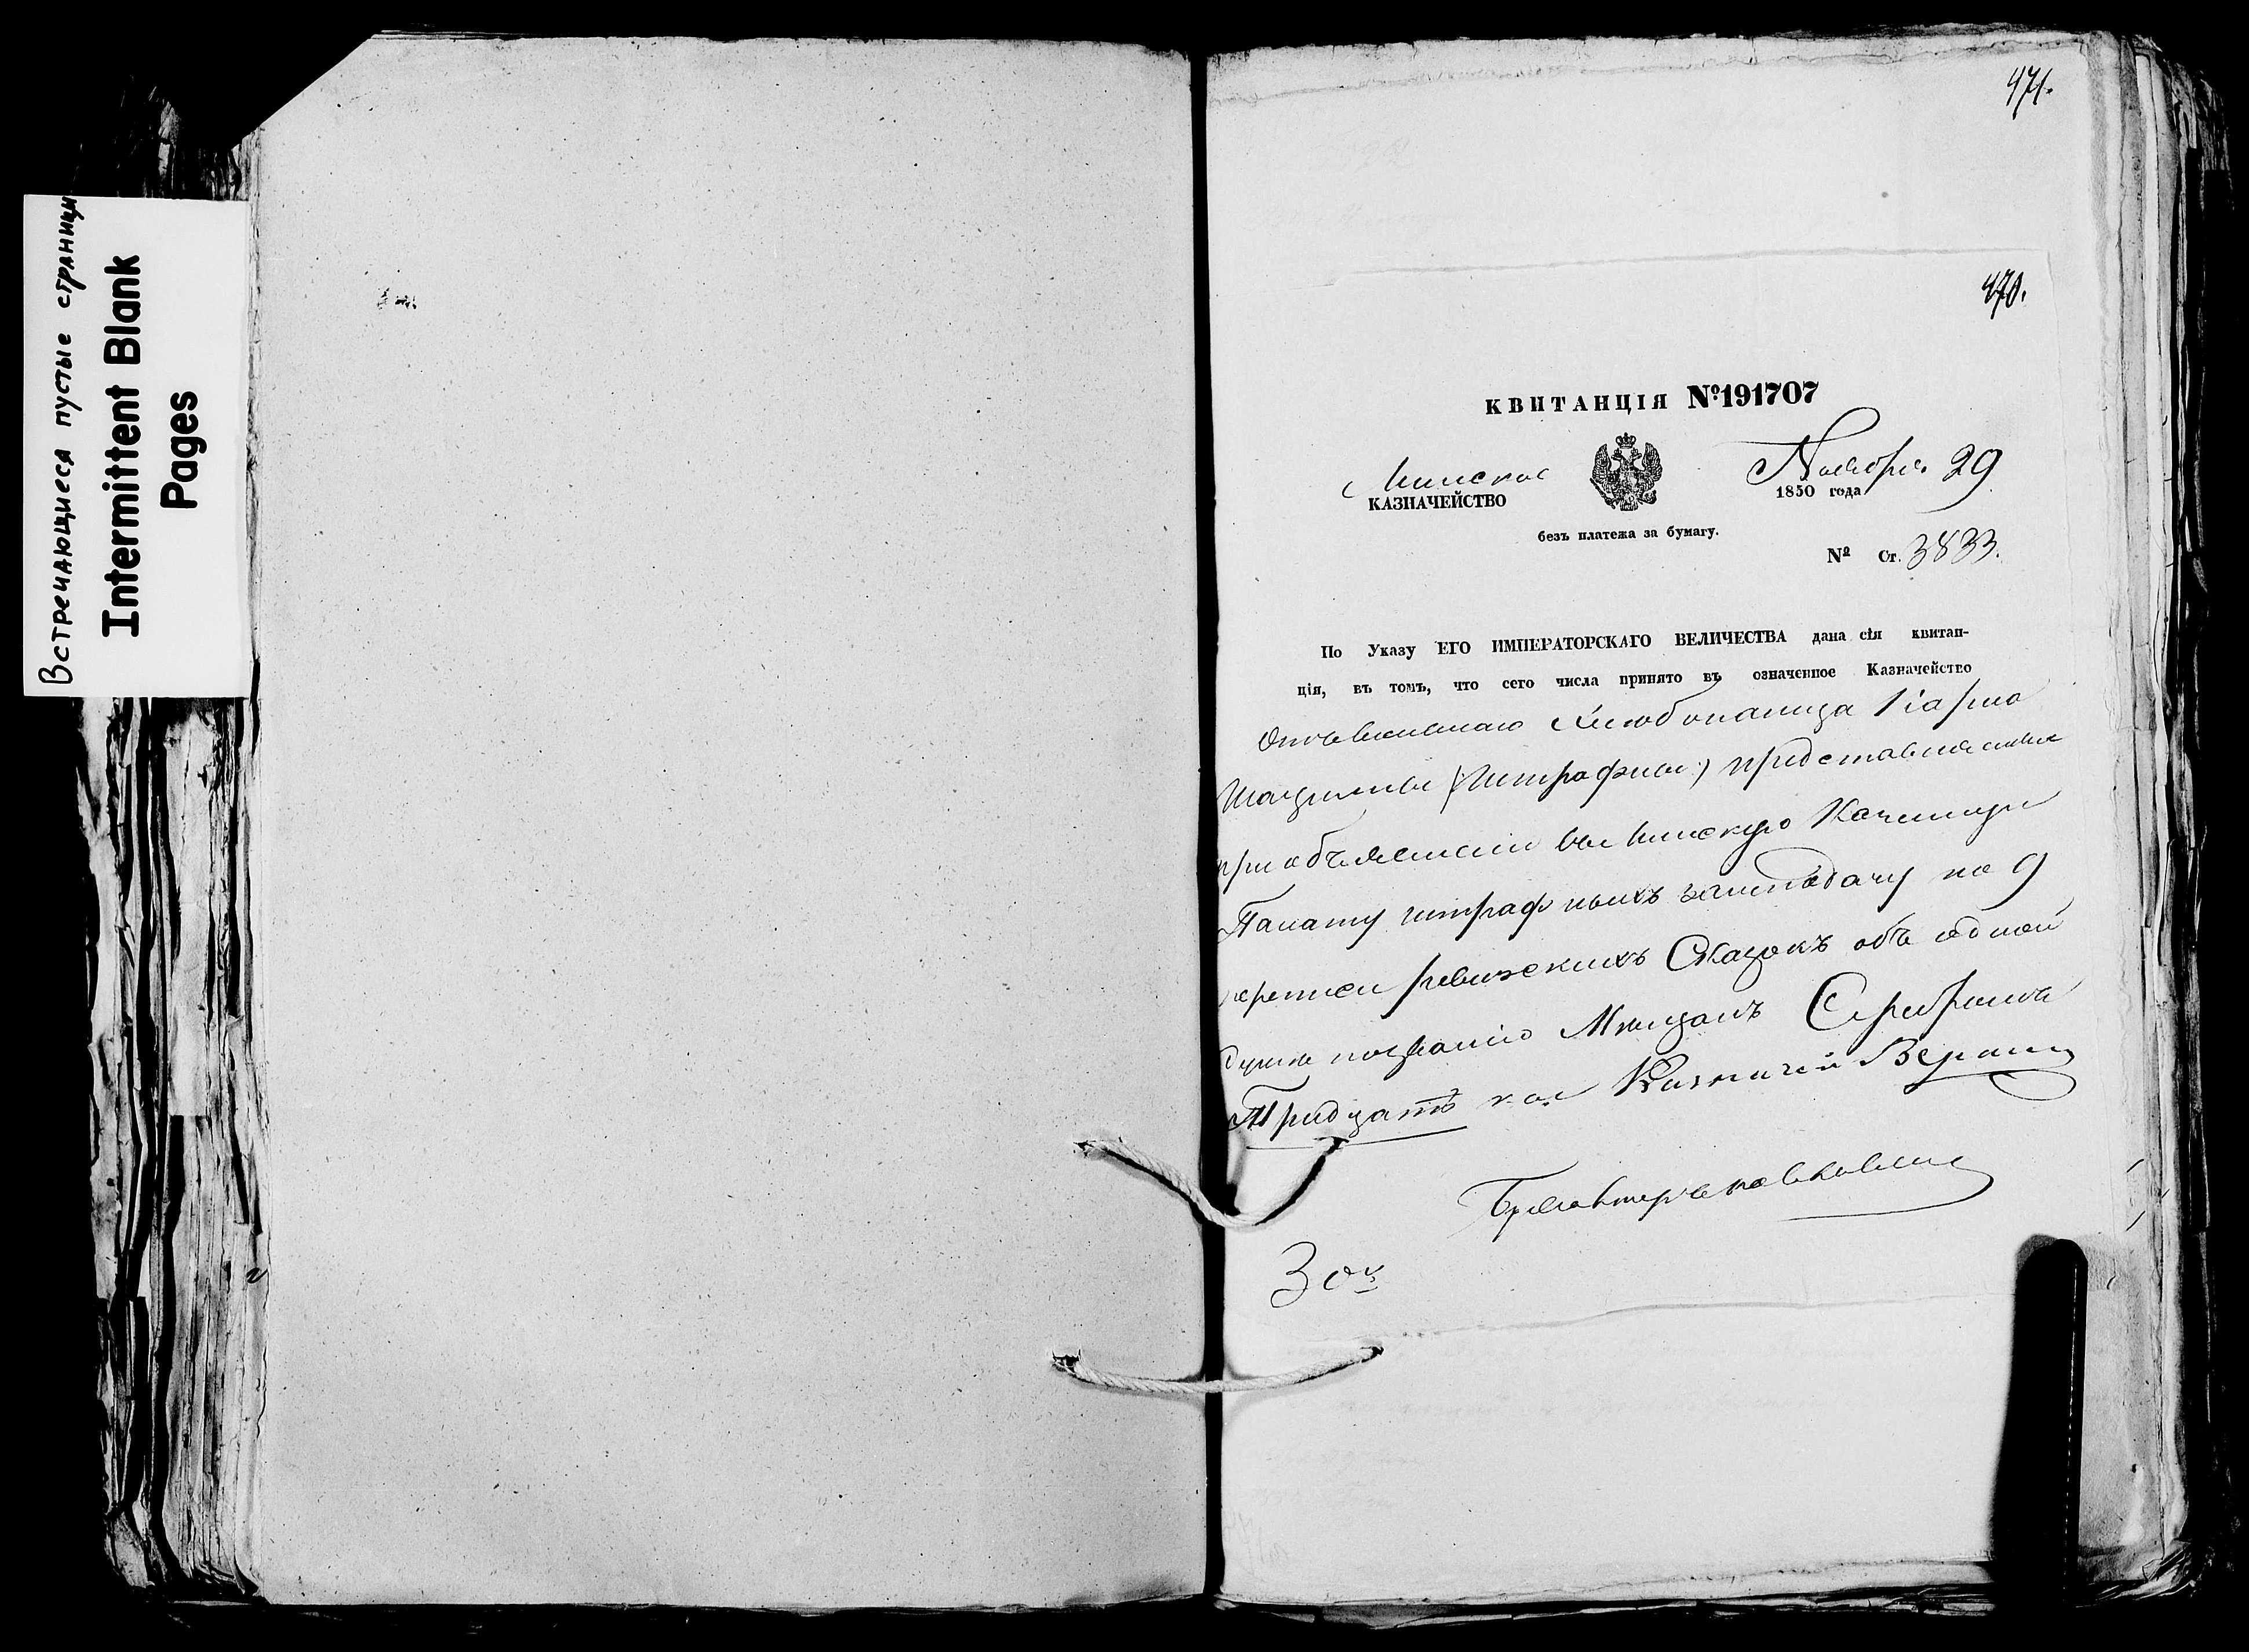 Встречающиеся пустые страницы
Intermittent Blank
Pages
471.
470.
КВИТАНЦІЯ №191707
Минское
КАЗНАЧЕЙСТВО
Ноября 29
1850 года
безъ платежа за бумагу.
№ Ст. 3833.
По Указу ЕГО ИМПЕРАТОРСКАГО ВЕЛИЧЕСТВА дана сія квитан-
ція, въ томъ, что сего числа принято въ означенное Казначейство
(Штрафныя) представленные
при объясненіи въ Минскую Казенную
Палату штрафныхъ подачу по 9
переписи ревизскихъ Сказокъ объ одной
душе Мещанъ Серебромъ
Тридцать коп Казначей
Бухалтеръ
30 к